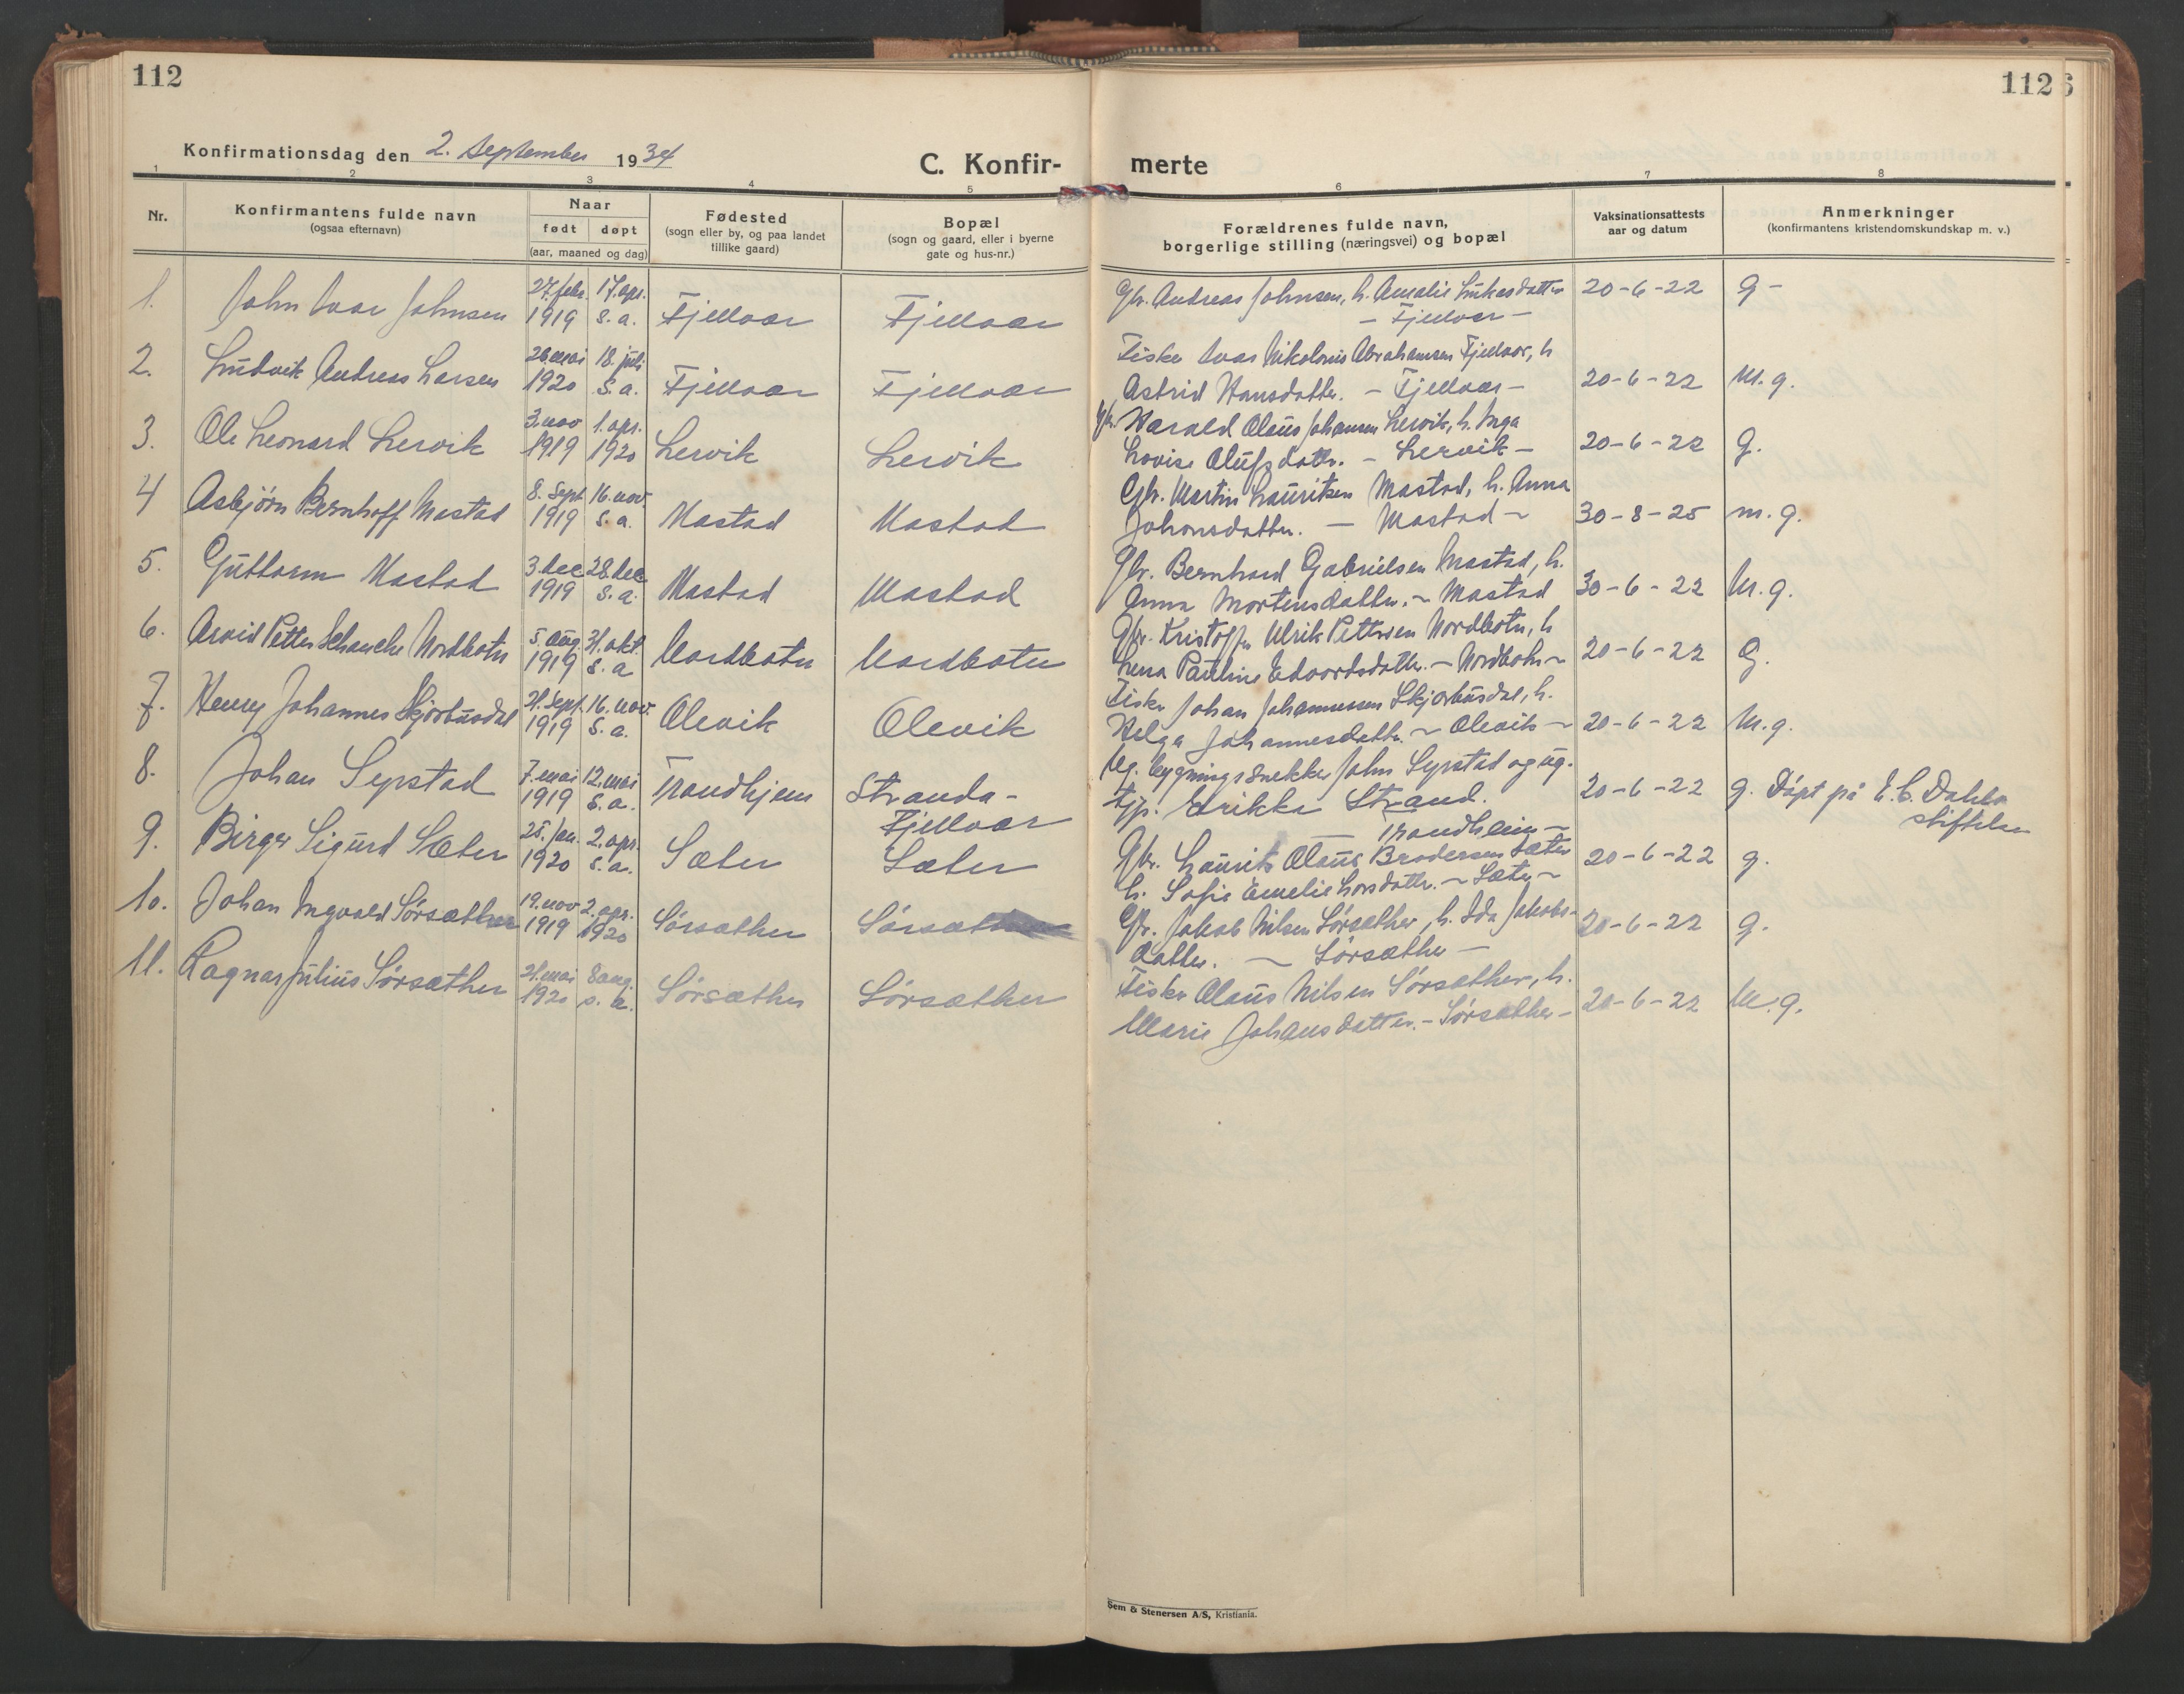 112
112
6
Konfirmationsdag den 2. September 1934
C. Konfir-
merte
1 2 3 4 5 6 7 8
Nr.
Konfirmantens fulde navn
(ogsaa efternavn)
Naar
født døpt
(aar, maaned og dag)
Fødested
(sogn eller by, og paa landet
tillike gaard)
Bopæl
(sogn og gaard, eller i byerne
gate og hus-nr.)
Forældrenes fulde navn,
borgerlige stilling (næringsvei) og bopæl
Vaksinationsattests
aar og datum
Anmerkninger
(konfirmantens kristendomskundskap m. v.)
1. John Ivar Johnsen 27. febr. 1919 17. apr. s. a. Fjellvær Fjellvær
Gbr. Andreas Johnsen, h. Amalie Lukasdatter
— Fjellvær —
20-6-22 g —
2. Ludvik Andreas Larsen 26. mai 1920 18. juli s. a. Fjellvær Fjellvær
Fisker Ivar Nikolaus Abrahamsen Fjellvær, h
Astrid Hansdatter. — Fjellvær —
20-6-22 M. g.
3. Ole Leonard Lervik 3. nov 1919 1. apr. 1920 Lervik Lervik
Gbr. Harald Olaus Johansen Lervik, h. Inga
Lovise Olufsdatter. — Lervik —
20-6-22 g.
4 Asbjörn Bernhoff Mastad 8. Sept 1919 16. nov. s. a. Mastad Mastad
Gbr. Martin Lauritsen Mastad, h. Anna
Johansdatter. — Mastad —
30-8-25 m. g.
5. Guttorm Mastad 3. dec 1919 28. dec s. a. Mastad Mastad
Gbr. Bernhard Gabrielsen Mastad, h.
Anna Mortensdatter. — Mastad
30-6-22 M. g.
6. Arvid Petter Schanche Nordbotn 5. aug. 1919 31. okt. s. a Nordbotn Nordbotn
Gbr. Kristoffer Ulrik Pettersen Nordbotn, h
Lena Pauline Edvardsdatter. — Nordbotn —
20-6-22 G.
7. Henry Johannes Skjørbusdal 21. Sept. 1919 16. nov. s. a. Olevik Olevik
Fisker Johan Johannessen Skjørbusdal, h.
Helga Johannesdatter — Olevik —
20-6-22 M. g.
8. Johan Sepstad 7. mai 1919 12. mai s. a. Trondhjem Stranda-
Fjellvær
Ug. bygningssnekker John Sepstad og ug.
tjp. Erikka Strand.
— Trondheim —
20-6-22 g. Døpt på E. C. Dahls
stiftelse
9. Birger Sigurd Sæter 25. jan. 1920 2. apr. s. a. Sæter Sæter
Gbr. Laurits Olaus Brodersen Sæter
h. Sofie Emelie Larsdatter. — Sæter —
20-6-22 g.
10. Johan Ingvald Sørsæther 19. nov 1919 2. apr. 1920 Sørsæther Sørsæther
Gbr. Jakob Nilsen Sørsæther, h. Ida Jakobs-
datter. — Sørsæther —
20-6-22 g.
11. Ragnar Julius Sørsæther 21. mai 1920 8 aug. s. a. Sørsæther Sørsæther
Fisker Olaus Nilsen Sørsæther, h.
Marie Johansdatter. — Sørsæther —
20-6-22 M. g.
Sem & Stenersen A/S, Kristiania.